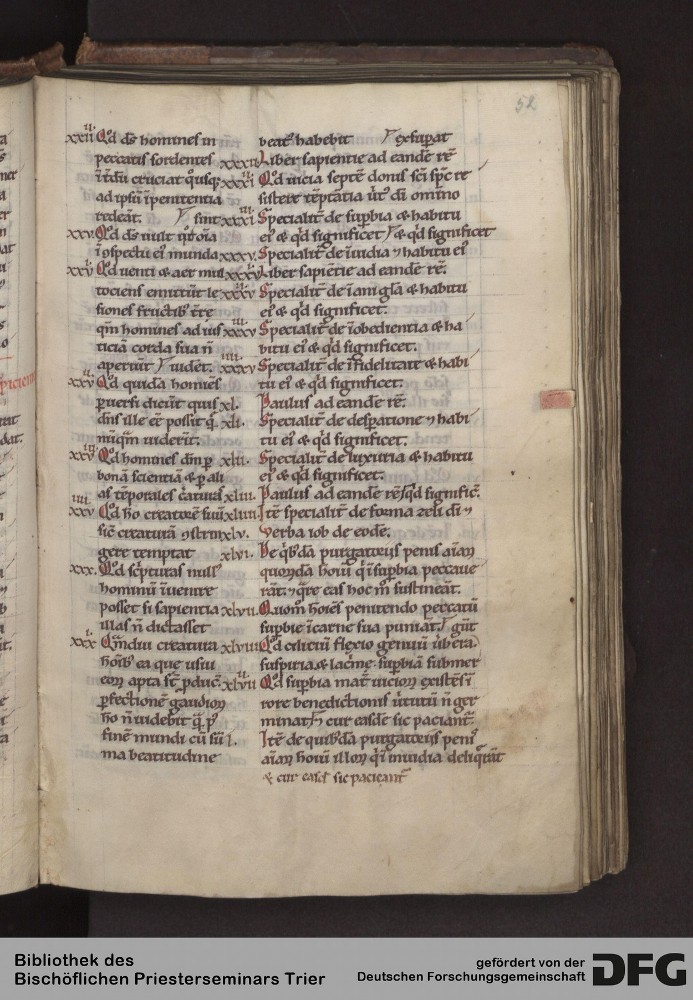 52
xxiii Qd ds homines in
peccatis sordentes
ītdū cruciat qusq;
ad ipsū īpenitentia
redeāt. sint
xxv Qd ds uult qd oīa
ī ɔspectu ei munda
xxvi Qd uenti & aer mul
tociens emittūt le
siones fructib; tre
qm homines ad ius
ticiā corda sua n̄
aperiūt uidet.
xxvii Qd quida homies
puersi dicūt quis
dns ille ēē possit q̄
nūqm uiderīt.
xxviii Qd homines dm p
bonā scientiā & p ali
as tēporales c̄aturas
xxix Qd ho creatorē suū
sic creaturā ɔstrin
gere temptat
xxx. Qd scpturas null
hominū īuenire
posset si sapientia
illas n̄ dictasset
xxxi Qmdiu creatura
hoīb; ea que usui
eoꝝ apta st pduc.
pfectionē gaudioꝝ
ho n̄ uidebit q̄ p
finē mundi cū sū
ma beatitudine
beat habebit exsupat
xxxii Liber sapientie ad eandē rē
Qd uicia septē donis sci spc re
sistere tēptantia
Specialit de supbia & habitu
ei & qd significet
Specialit de īuidia & habitu ei
Liber sapiētie ad eandē rē.
Specialit de īani gla & habitu
ei & qd significet.
Specialit de īobedientia & ha
bitu ei & qd significet.
Specialit de īfidelitate & habi
tu ei & qd significet.
xl. Paulus ad eandē rē.
xli. Specialit de despatione & habi
tu ei & qd significet.
xlii. Specialit de luxuria & habitu
ei & qd significet.
xliii. Paulus ad eandē rē qd signific.
xliiii Itē specialit de forma zeli di
xlv. Verba iob de eodē.
xlvi. De qbdā purgatoriis penis aīaꝝ
quorda hoīū q̄ ī supbia peccaue
rāt. & qre eas hoc m̄ sustineāt.
xlvii. Quom hoīes penitendo peccatū
supbie ī carne sua puniāt.
xlviii Qd cilicii flexio genuū
suspiria & lac̄me supbiā submer
xlviiii Qd supbia mat uicioꝝ existēs ī
rore benedictionis n̄ ger
minat & cur easdē sic paciant.
l. Itē de quibdā purgatoriis peni
aīaꝝ hoīū illoꝝ q̄ ī inuidia deliqrāt
& cur easdē sic paciant
Bibliothek des
Bischöflichen Priesterseminars Trier
gefördert von der
Deutschen Forschungsgemeinschaft
DFG